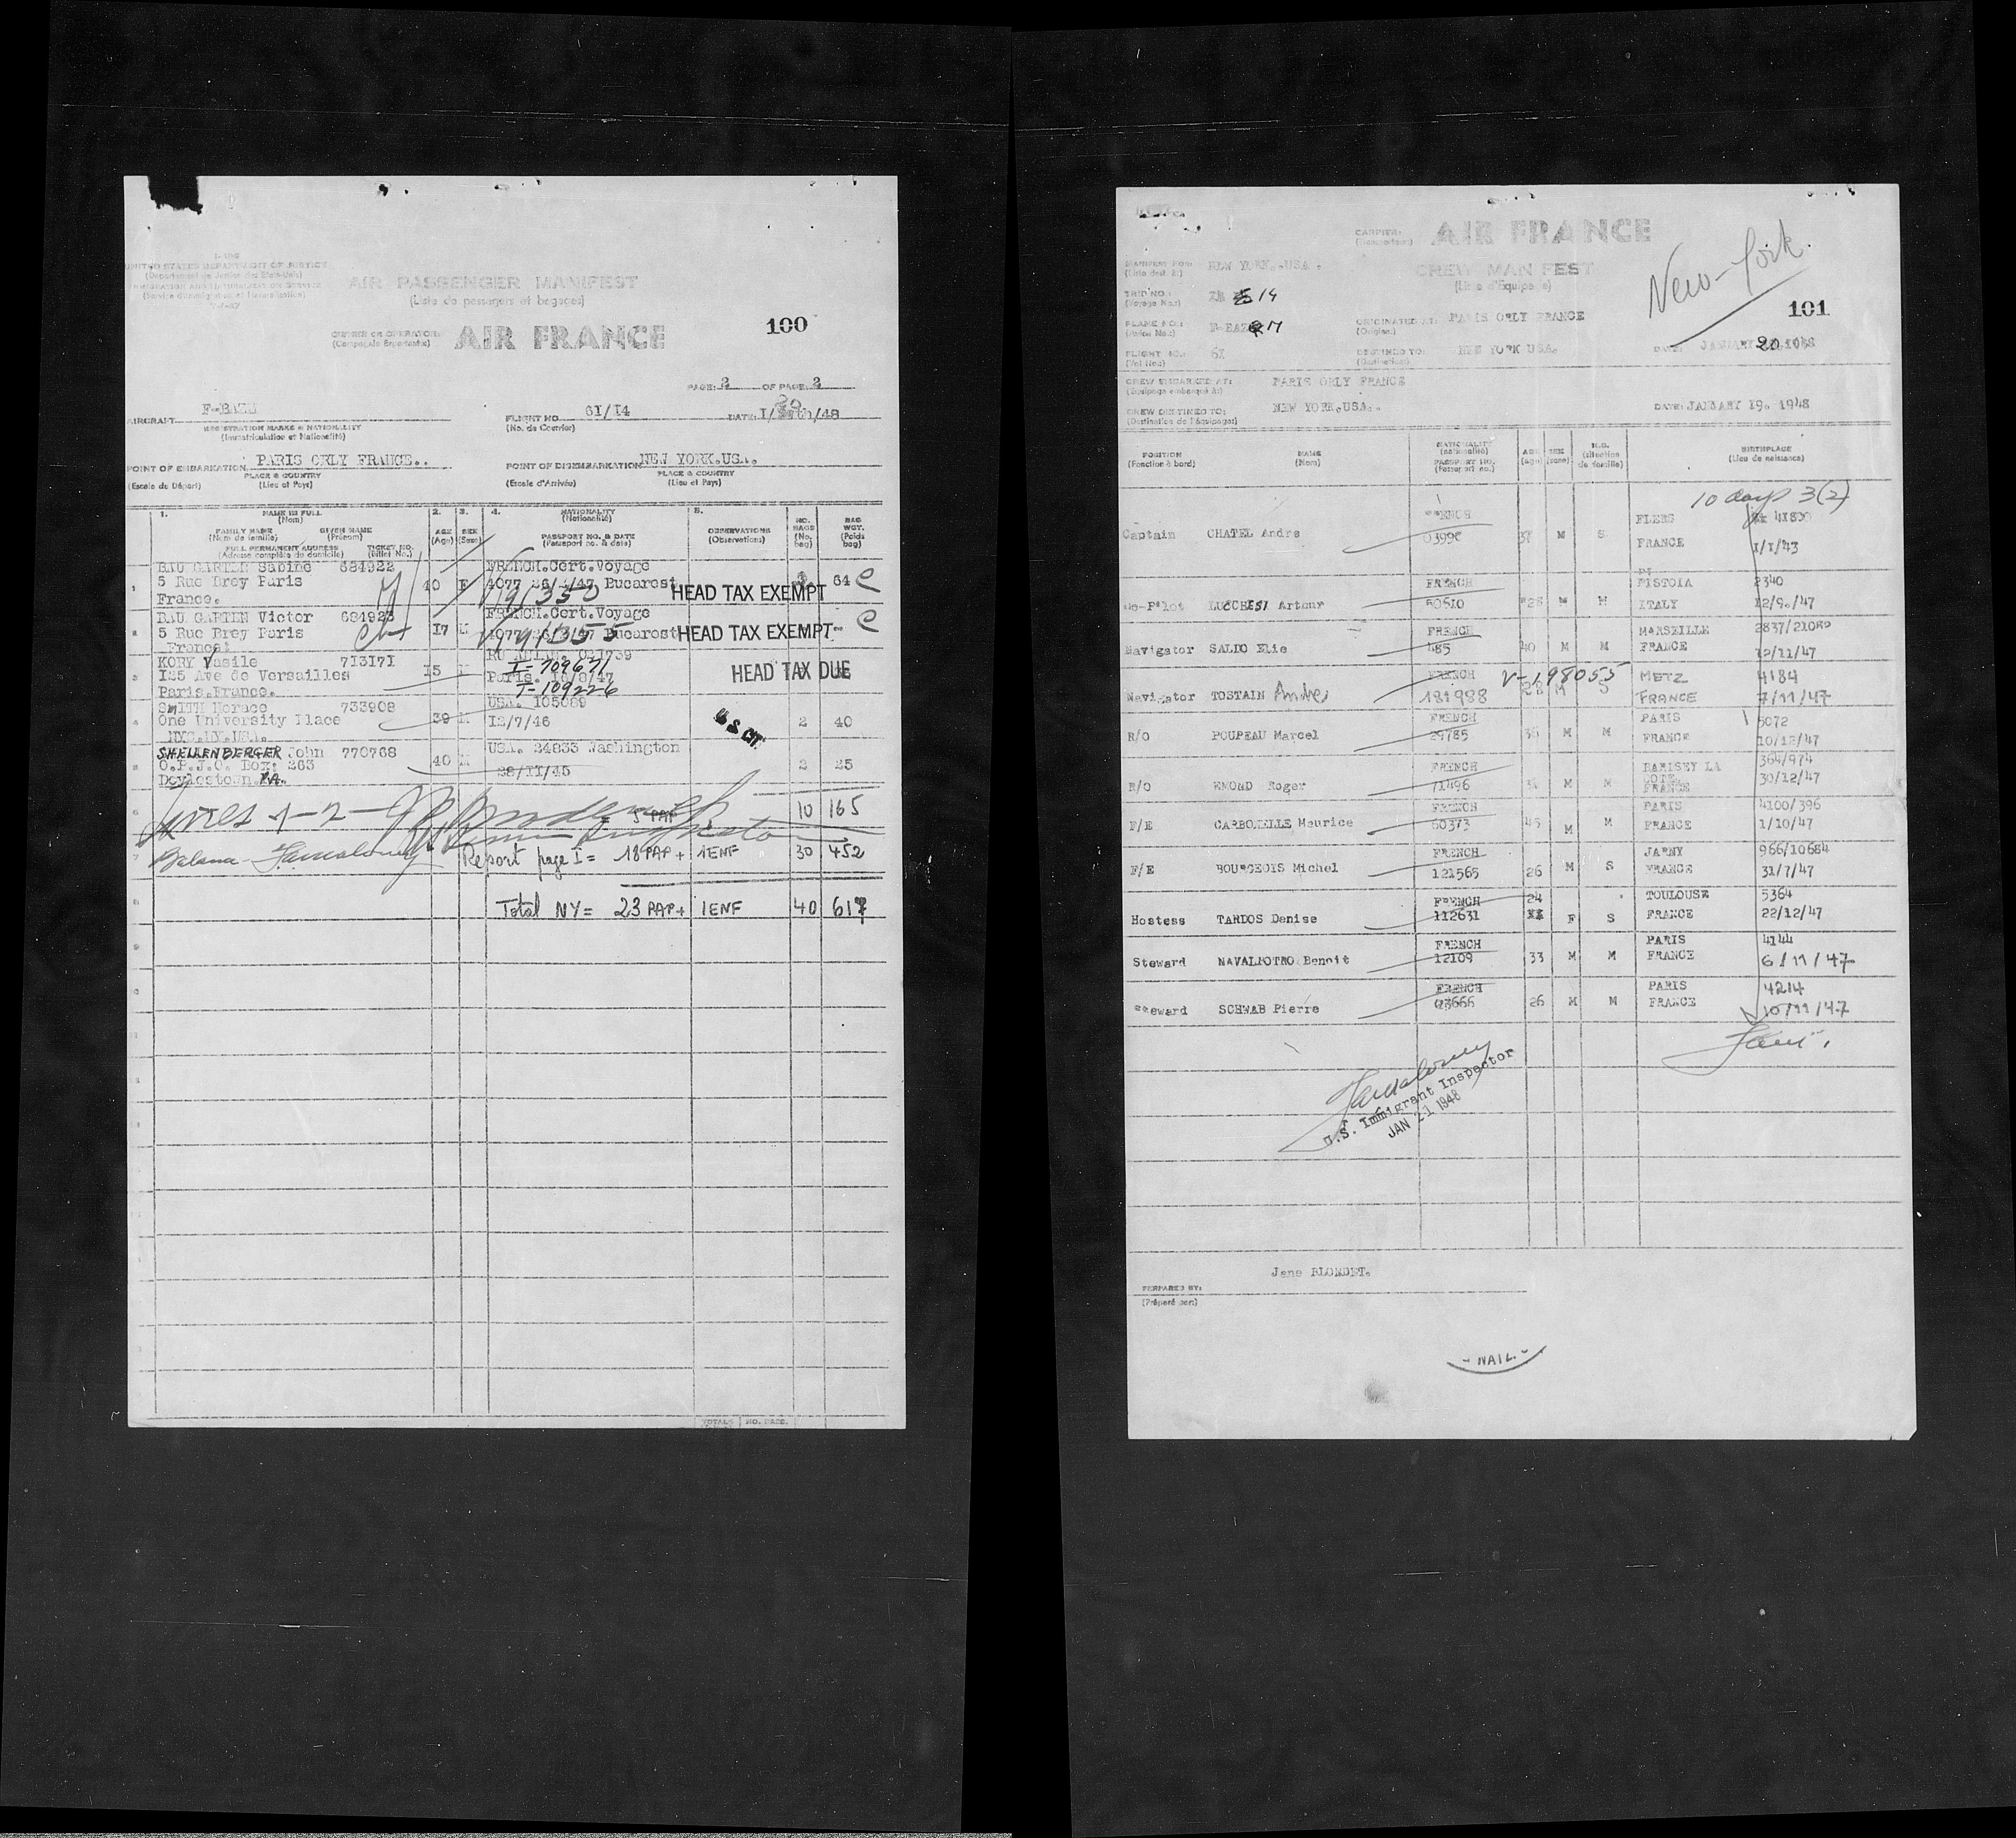 I-466
UNITED STATES DEPARTMENT OF JUSTICE
(Département de Justice des Etats-Unis)
IMMIGRATION AND NATURALIZATION SERVICE
(Service d'immigration et Naturalisation)
AIR PASSENGER MANIFEST
(Liste de passagers et bagages)
OWNER OR OPERATOR:
(Compagnie Exportante)
AIR FRANCE
100
PAGE: 2 OF PAGE: 2
AIRCRAFT
REGISTRATION MARKS & NATIONALITY
(Immatriculation et Nationalité)
FLIGHT NO 61/I4
(No. de Courrier)
DATE: I/20/48
POINT OF EMBARKATION PARIS ORLY FRANCE..
PLACE & COUNTRY
(Escale de Départ) (Lieu et Pays)
POINT OF DISEMBARKATION NEW YORK.USA.
PLACE & COUNTRY
(Escale d'Arrivée) (Lieu et Pays)
1. NAME IN FULL
(Nom)
FAMILY NAME GIVEN NAME
(Nom de famille) (Prénom)
FULL PERMANENT ADDRESS TICKET NO.
(Adresse complète de domicile) (Billet No.)
2. AGE (Age)
3. SEX (Sexe)
4. NATIONALITY
(Nationalité)
PASSPORT NO. & DATE
(Passeport no. & date)
5. OBSERVATIONS
(Observations)
NO. BAGS (No. bag)
BAG WGT. (Poids bag)
1 BAU GARTEN Sabine 684922 FRENCH.Cert.Voyage
5 Rue Brey Paris 40 F Bucarest HEAD TAX EXEMPT 64
France.
2 BAU GARTEN Victor 684923 FRENCH.Cert.Voyage
5 Rue Brey Paris I7 M Bucarest HEAD TAX EXEMPT
France.
3 KORY Vasile 7I3I7I
I25 Ave de Versailles I5 M I-709671 HEAD TAX DUE
Paris.France. T-109226
4 SMITH Horace 733908 USA. I05089
One University Place 39 M I2/7/46 U S CIT. 2 40
NYC.NY.USA.
5 SHELLENBERGER John 770768 USA. 24833 Washington
O.P.J.O. Box: 263 40 M 28/II/45 2 25
Doylestown PA.
Lines 1-2-
5 PAP 10 165
Report page I = 18 PAP + 1ENF 30 452
Total NY = 23 PAP + 1ENF 40 617
TOTALS NO. PASS.
CARRIER:
(Transporteur)
AIR FRANCE
New-York
MANIFEST FOR: NEW YORK..USA.
(Liste dest. à:)
CREW MANIFEST
(Liste d'Equipage)
TRIP NO.: 14
(Voyage No.:)
101
PLANE NO.:
(Avion No.:)
ORIGINATED AT: PARIS ORLY FRANCE
(Origine:)
FLIGHT NO.: 6I
(Vol No.:)
DESTINED TO: NEW YORK USA.
(Destination:)
DATE: JANUARY 20.1948
CREW EMBARKED AT: PARIS ORLY FRANCE
(Equipage embarqué à:)
CREW DESTINED TO: NEW YORK.USA..
(Destination de l'équipages)
DATE: JANUARY I9. I948
POSITION
(Fonction à bord)
NAME
(Nom)
NATIONALITY
(nationalité)
PASSPORT NO.
(Passeport no.)
AGE (age)
SEX (sexe)
M.S. (situation de famille)
BIRTHPLACE
(Lieu de naissance)
10 days 3(2)
Captain CHATEL Andre FRENCH 37 M S FLERS
FRANCE
Co-Pilot LUCCHESI Arthur FRENCH 60610 28 M M PISTOIA 2340
ITALY 12/9./47
Navigator SALDO Elie FRENCH 485 40 M M MARSEILLE
FRANCE 12/11/47
V-198055
Navigator TOSTAIN André FRENCH 181988 28 M S METZ 4184
FRANCE 7/11/47
R/O POUPEAU Marcel FRENCH M M PARIS 5072
FRANCE 10/12/47
R/O EMOND Roger FRENCH 71496 M M RAMISEY LA COTE 364/974
FRANCE 30/12/47
F/E CARBONELLE Maurice FRENCH 60373 45 M M PARIS 4100/396
FRANCE 1/10/47
F/E BOURGEOIS Michel FRENCH 121565 26 M S JARNY 966/10684
FRANCE 31/7/47
Hostess TARDOS Denise FRENCH 112631 24 F S TOULOUSE 5364
FRANCE 22/12/47
Steward NAVALPOTRO Benoit FRENCH 12109 33 M M PARIS 4144
FRANCE 6/11/47
Steward SCHWAB Pierre FRENCH 26 M M PARIS 4214
FRANCE 10/11/47
U.S. Immigrant Inspector
JAN 21 1948
Jane BLONDET.
PREPARED BY:
(Préparé par:)
- NAIL -